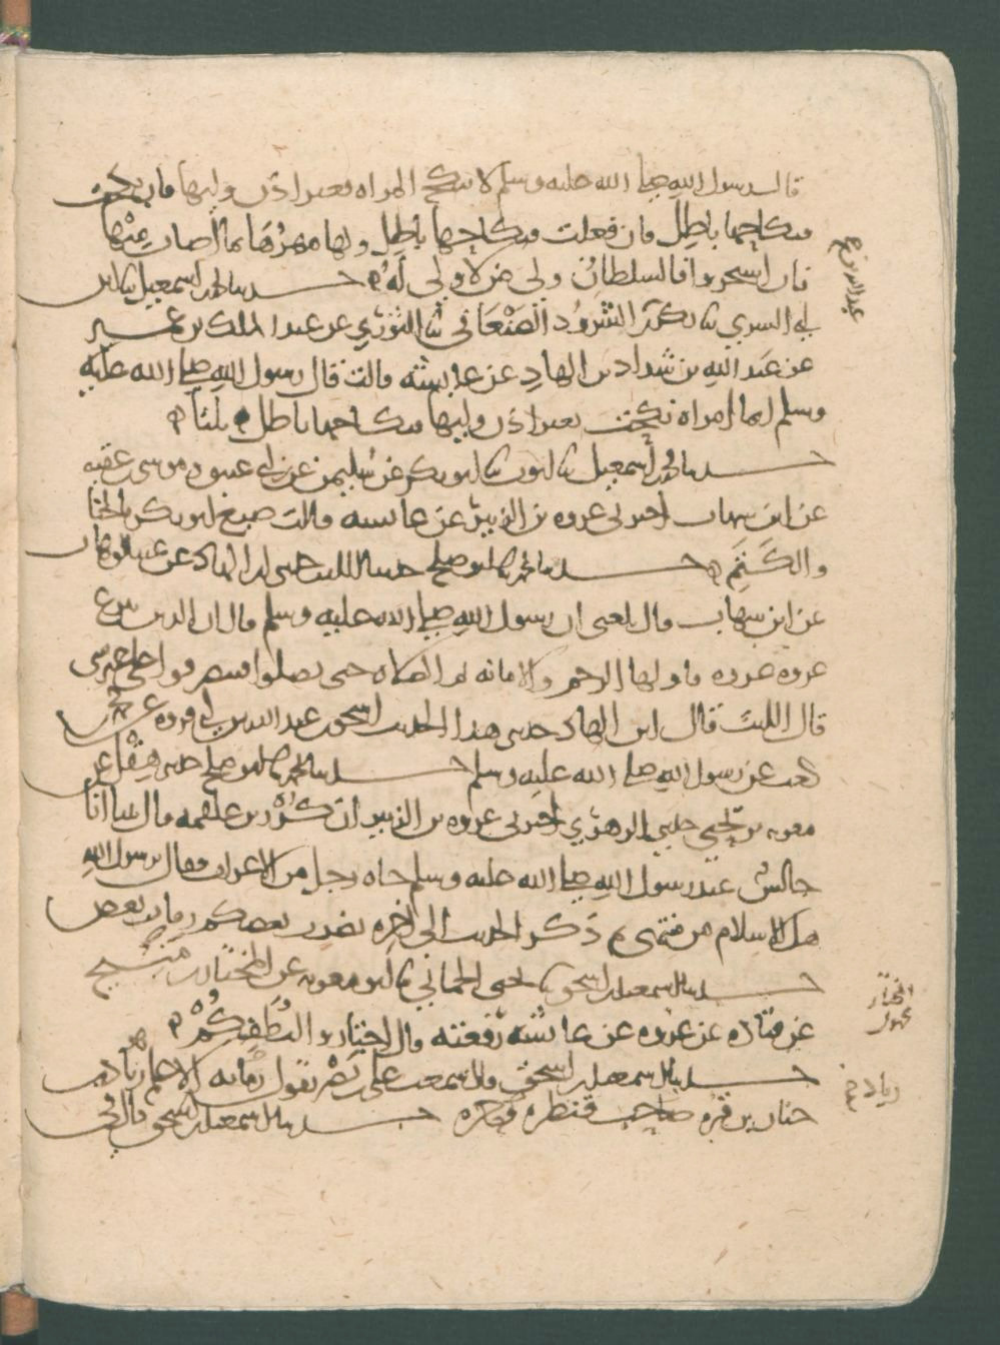 قال رسول الله صلى الله عليه وسلم لا تنكح المراه بغير اذن وليها فان نكحت
فنكاحها باطل فان فعلت فنكاحها باطل ولها مهرها بما أصاب منها
فان اشتجروا فالسلطان ولي من لا ولي له حدثنا محمد بن اسمعيل نا ابن
ابي السري نا بكر الشرود الصنعاني نا الثوري عن عبد الملك بن عمير
عن عبد الله بن شداد بن الهاد عن عايشه قالت قال رسول الله صلى الله عليه
وسلم ايما امراه نكحت بغير اذن وليها فنكاحها باطل ثلثا
حدثنا محمد بن اسمعيل نا ايوب نا ابو بكر عن سليمن عن ابن ابي عتيق وموسى بن عقبه
عن ابن شهاب اخبرني عروه بن الزبير عن عائشه قالت صبغ ابو بكر بالحنا
والكتم حدثنا محمد نا ابو صلح حدثنا الليث حدثني ابن الهاد عن عبد الوهاب
عن ابن شهاب قال بلغني ان رسول الله صلى الله عليه وسلم قال ان الدين
عروه عروه فاولها الرحم والامانه ثم الصلاه حتى
قال الليث قال ابن الهاد حدثني هذا الحديث اسحق بن عبد الله بن ابي فروه عن محمد بن
كعب عن رسول الله صلى الله عليه وسلم حدثنا محمد نا ابو صلح حدثني هقل عن
معويه بن يحيى حدثني الزهري اخبرني عروه بن الزبير ان كرز بن علقمه قال بينا أنا
جالس عند رسول الله صلى الله عليه وسلم جاه رجل من الاعراب فقال يرسول الله
هل للاسلام من منتهى ذكر الحديث الى اخره يضرب بعضكم رقاب بعض
حدثنا اسمعيل بن اسحق نا يحيى الحماني نا ابو معويه عن المختار بن منيح
عن قتاده عن عروه عن عائشه رفعته قال اختاروا لنطفكم
حدثنا اسمعيل بن اسحق قال سمعت علي بن نصر يقول
حنان بن قره صاحب قنطره قره حدثنا اسمعيل بن اسحق قال لي
المختار
مجهول
زياد